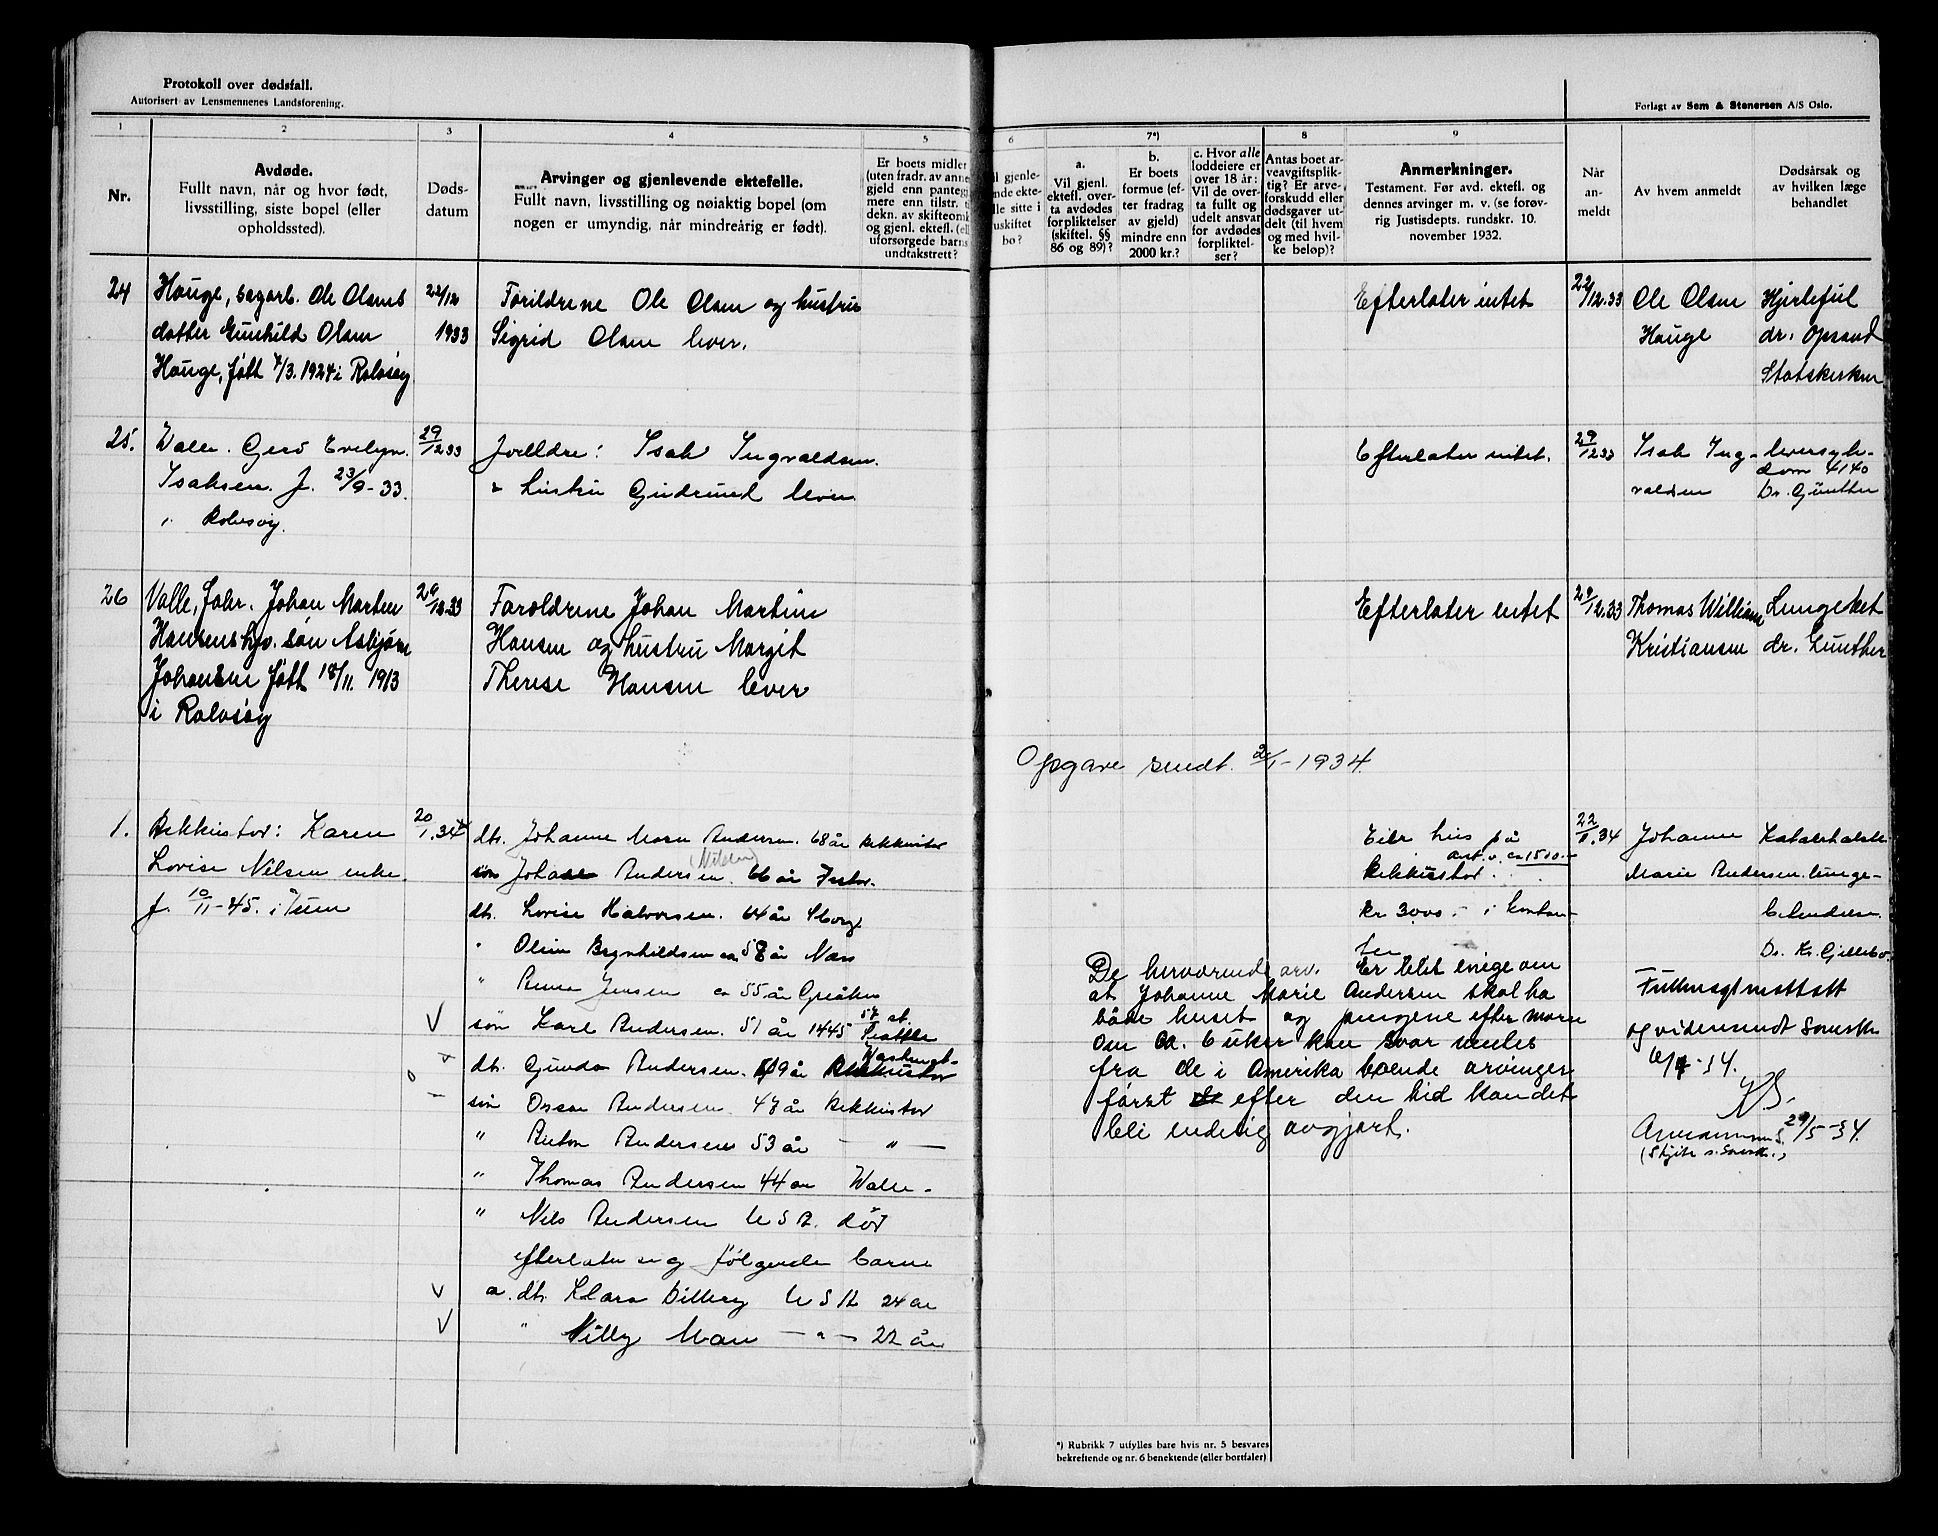 Protokoll over dødsfall.
Autorisert av Lensmennenes Landsforening.
Forlagt av Sem & Stenersen A/S Oslo.
1 2 3 4 5 6 7*) 8 9
Nr.
Avdøde.
Fullt navn, når og hvor født,
livsstilling, siste bopel (eller
opholdssted).
Døds-
datum
Arvinger og gjenlevende ektefelle.
Fullt navn, livsstilling og nøiaktig bopel (om
nogen er umyndig, når mindreårig er født).
Er boets midler
(uten fradr. av annen
gjeld enn pantegj
mere enn tilstr. t
dekn. av skifteomk
og gjenl. ektef. (el
uforsørgede barns
undtakstrett?
l gjenle-
nde ekte-
lle sitte i
uskiftet
bo?
a.
Vil gjenl.
ektef. over-
ta avdødes
forpliktelser
(skiftel. §§
86 og 89)?
b.
Er boets
formue (ef-
ter fradrag
av gjeld)
mindre enn
2000 kr.?
c. Hvor alle
loddeiere er
over 18 år:
Vil de over-
ta fullt og
udelt ansvar
for avdødes
forpliktel-
ser?
Antas boet ar-
veavgiftsplik-
tig? Er arve-
forskudd eller
dødsgaver ut-
delt (til hvem
og med hvil-
ke beløp)?
Anmerkninger.
Testament. Før avd. ektefl. og
dennes arvinger m. v. (se forøv-
rig Justisdepts. rundskr. 10.
november 1932.
Når
an-
meldt
Av hvem anmeldt
Dødsårsak og
av hvilken læge
behandlet
24 Hauge, sagarb. Ole Olsens
datter Gunhild Olsen
Hauge, født 7/3. 1924 i Rolvsøy
22/12
1933
Forildrene Ole Olsen og hustru
Sigrid Olsen lever.
Efterlater intet
22/12.33
Ole Olsen
Hauge
Hjertefeil
dr. Opsand
Statskirken
25. Valle. Gerd Evelyn
Isaksen. f. 23/9-33.
i Rolvsøy.
29/12 33
Forelldre: Isak Ingvaldsen.
hustru Gudrund lever
Efterlater intet.
29/12 33
Isak Ing-
valdsen
dom 4140
Dr. Günther
26 Valle, Johan Martin
Hansens hjv. søn Asbjørn
Johansen født 18/11. 1913
i Rolvsøy
29/12.33
Foreldrene Johan Martin
Hansen og hustru Margit
Therese Hansen lever
Efterlater intet
29/12.33
Thomas William
Kristiansen
Lungeket
dr. Gunther
Opgave sendt. 2/1-1934.
1. Rekkustad: Karen
Lovise Nilsen enke.
f. 10/11-45. i Tune
20/1.34
dtr. Johanne Marie Andersen. 68 år Rekkustad
(Nilsen)
søn Johan Andersen. 66 år
dtr. Lovise Halvorsen. 64 år Sborg.
" Oline Brynhildsen ca. 58 år Næss
" Anna Jensen ca 55 år Greåker
søn Karl Andersen. 51 år 1445 57 st. Seattle
Washingt-
dt. Gunda Andersen. 49 år Rekkustad
søn Oscar Andersen 47 år Rekkustad
" Anton Andersen 53 år — " —
" Thomas Andersen 44 år Valle.
" Nils Andersen U S A. død
efterlater seg følgende barn
a. dtr. Klara Dilberg U S A 24 år
" Nilly Man — " — 22 år
Eier hus på
ant. v. ca 1500.—
Rekkustad.
Kr 3000.- i kontan-
ter
De herværende arv. Er blit enige om
at Johanne Marie Andersen skal ha
både huset og pengene efter moren
Om ca. 6 uker kan svar ventes
fra de i Amerika boende arvinger
først efter den tid kan det
bli endelig avgjort.
22/1.34
Johanne
Marie Andersen.
lunge-
betendelse.
Dr. Kr. Gjellebo.
Fuldmagt mottatt
og videresendt Sorensk
6/4-34.
KS.
29/5-34.
(Skifte s. Sorensk.)
*) Rubrikk 7 utfylles bare hvis nr. 5 besvares
bekreftende og nr. 6 benektende (eller bortfaler)